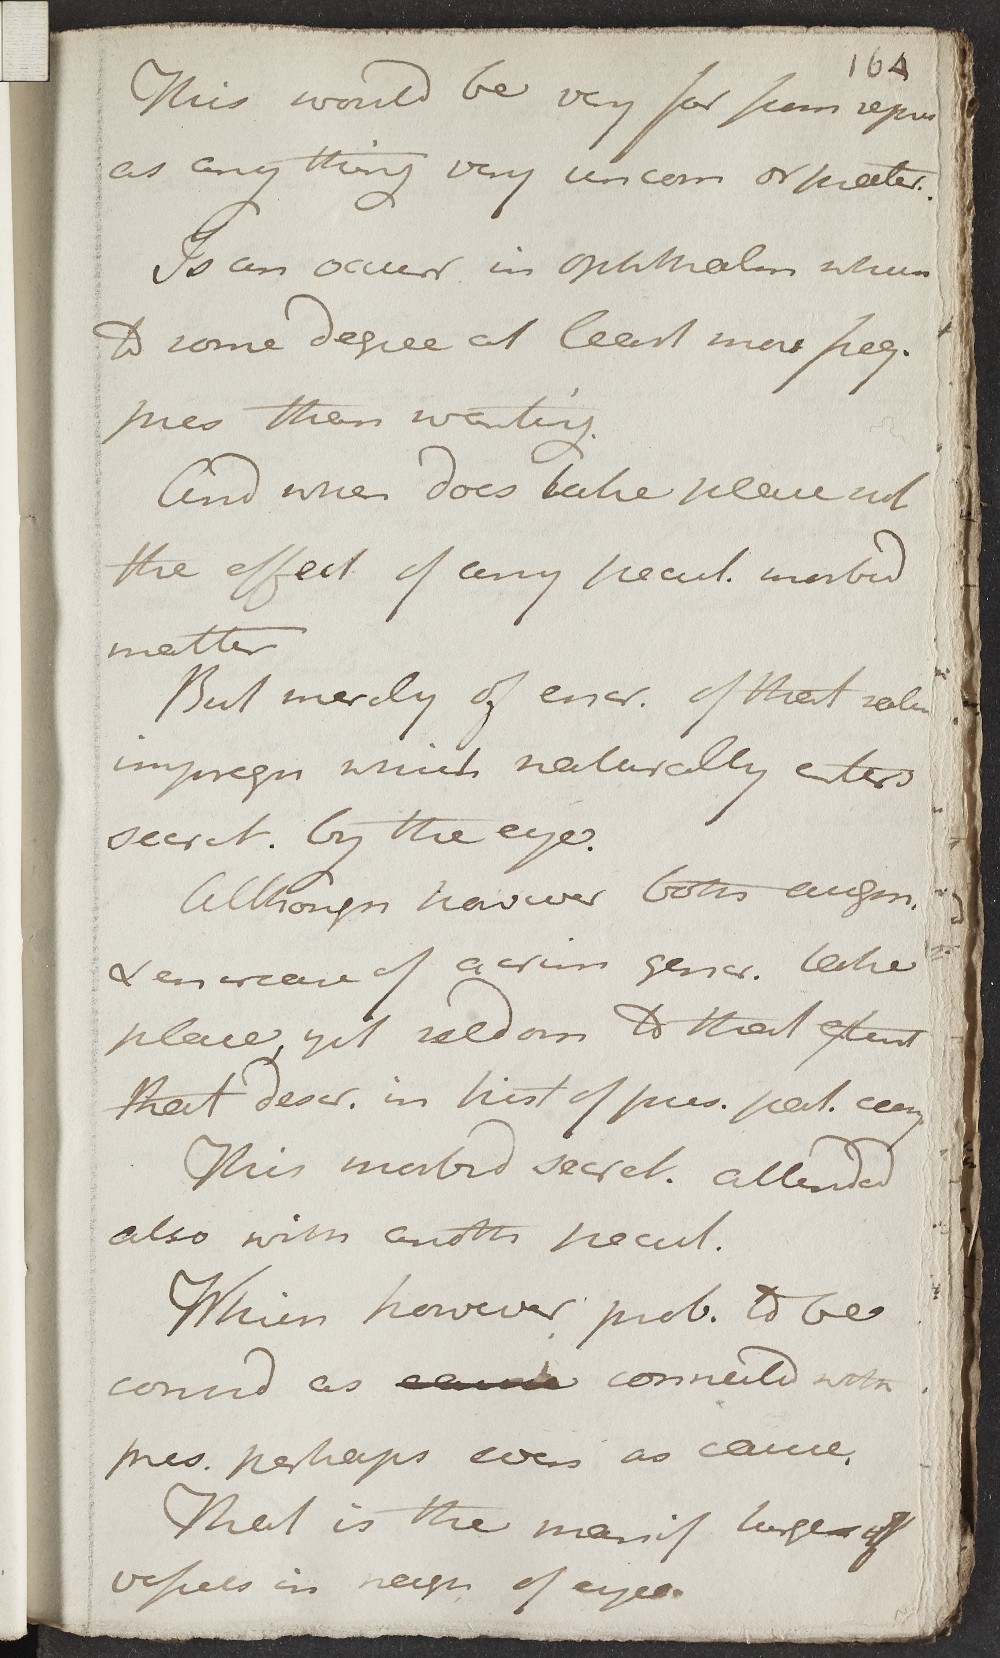 164
This would be very far from repres
as any thing very uncom or preter.
Is an occurr in ophthalm when
to some degree at least more freq.
pres than wanting.
And when does take place not
the effect of any pecul. morbid
matter
But merely of encr. of that salin
impregn which naturally enters
secret. by the eye.
Although however both augm.
& encrease of acrim gener. take
place, yet seldom to that extent
that descr. in hist of pres. pat.ccay
This morbid secret. attended
also with anoth pecul.
Which however prob. to be
consid as connected with
pres. perhaps even as cause.
That is the manif turge of
vessels in neign of eye.